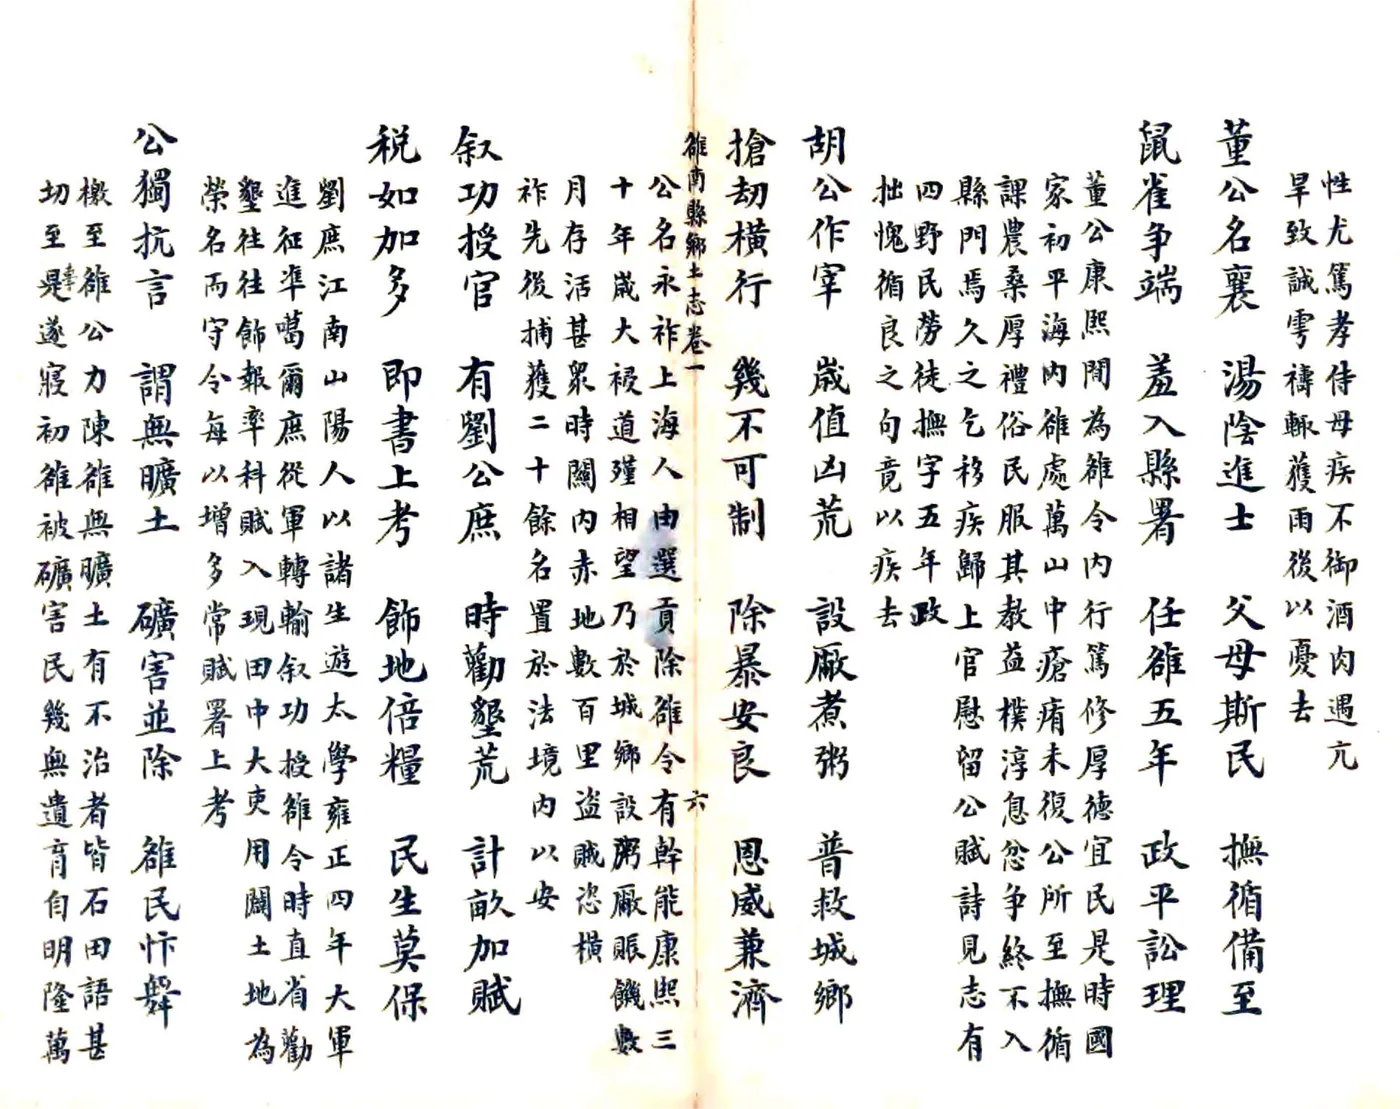 性尤篤孝侍母疾不御酒肉遇亢
旱致誠雩禱輙獲雨後以憂去
董公名襄 湯陰進士 父母斯民 撫循備至
鼠雀争端 羞入縣署 任雒五年 政平訟理
董公康熙間為雒令内行篤修厚德宜民是時國
家初平海内雒處萬山中瘡痏未復公所至撫循
課農桑厚禮俗民服其教益樸淳息忿争終不入
縣門焉久之乞移疾歸上官慰留公賦詩見志有
四野民勞徒撫字五年政
拙愧循良之句竟以疾去
胡公作宰 歲值凶荒 設厰煮粥 普救城鄉
搶劫橫行 幾不可制 除暴安良 恩威兼濟
雒南縣鄉土志卷一 六
公名永祚上海人由選貢除雒令有幹能康熙三
十年歲大祲道殣相望乃於城鄉設粥厰賑饑數
月存活甚眾時關内赤地數百里盜賊恣橫
祚先後捕獲二十餘名置於法境内以安
叙功授官 有劉公庶 時勸墾荒 計畝加賦
税如加多 即書上考 飾地倍糧 民生莫保
劉庶江南山陽人以諸生遊太學雍正四年大軍
進征凖噶爾庶從軍轉輸叙功授雒令時直省勸
墾往往飾報率科賦入現田中大吏用闢土地為
榮名而守令每以增多常賦署上考
公獨抗言 謂無曠土 礦害並除 雒民忭舞
檄至雒公力陳雒無曠土有不治者皆石田語甚
切至是事遂寢初雒被礦害民幾無遺育自明隆萬